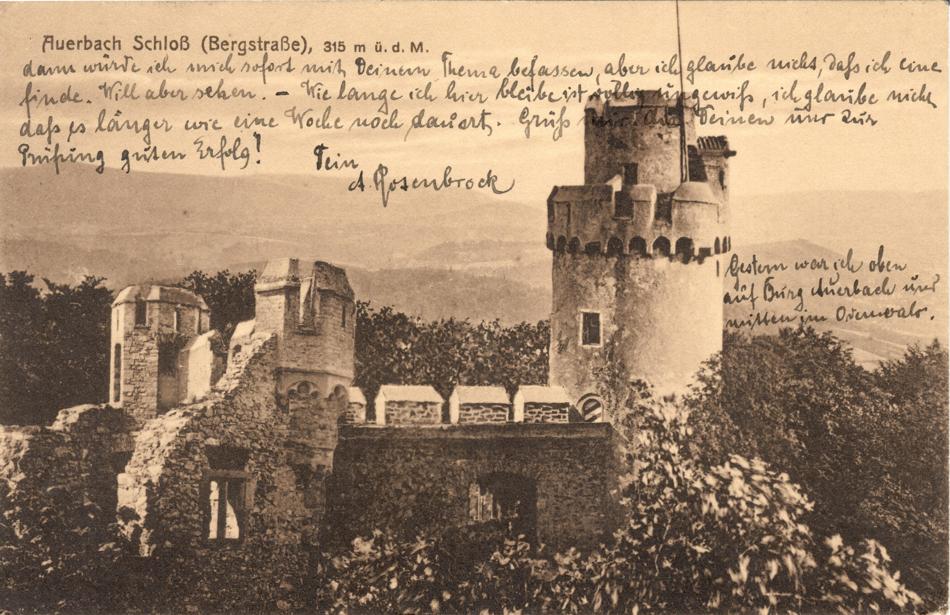 Auerbach Schloß (Bergstraße), 315 m ü. d. M.
dann würde ich mich sofort mit Deinem Thema befassen, aber ich glaube nicht, daß ich eine
finde. Will aber sehen. – Wie lange ich hier bleibe ist völlig ungewiß, ich glaube nicht
daß es länger wie eine Woche noch dauert. Gruß Deinen und zur
Prüfung guten Erfolg!
Dein
A. Rosenbrock
Gestern war ich oben
auf Burg Auerbach und
mitten im Odenwald.